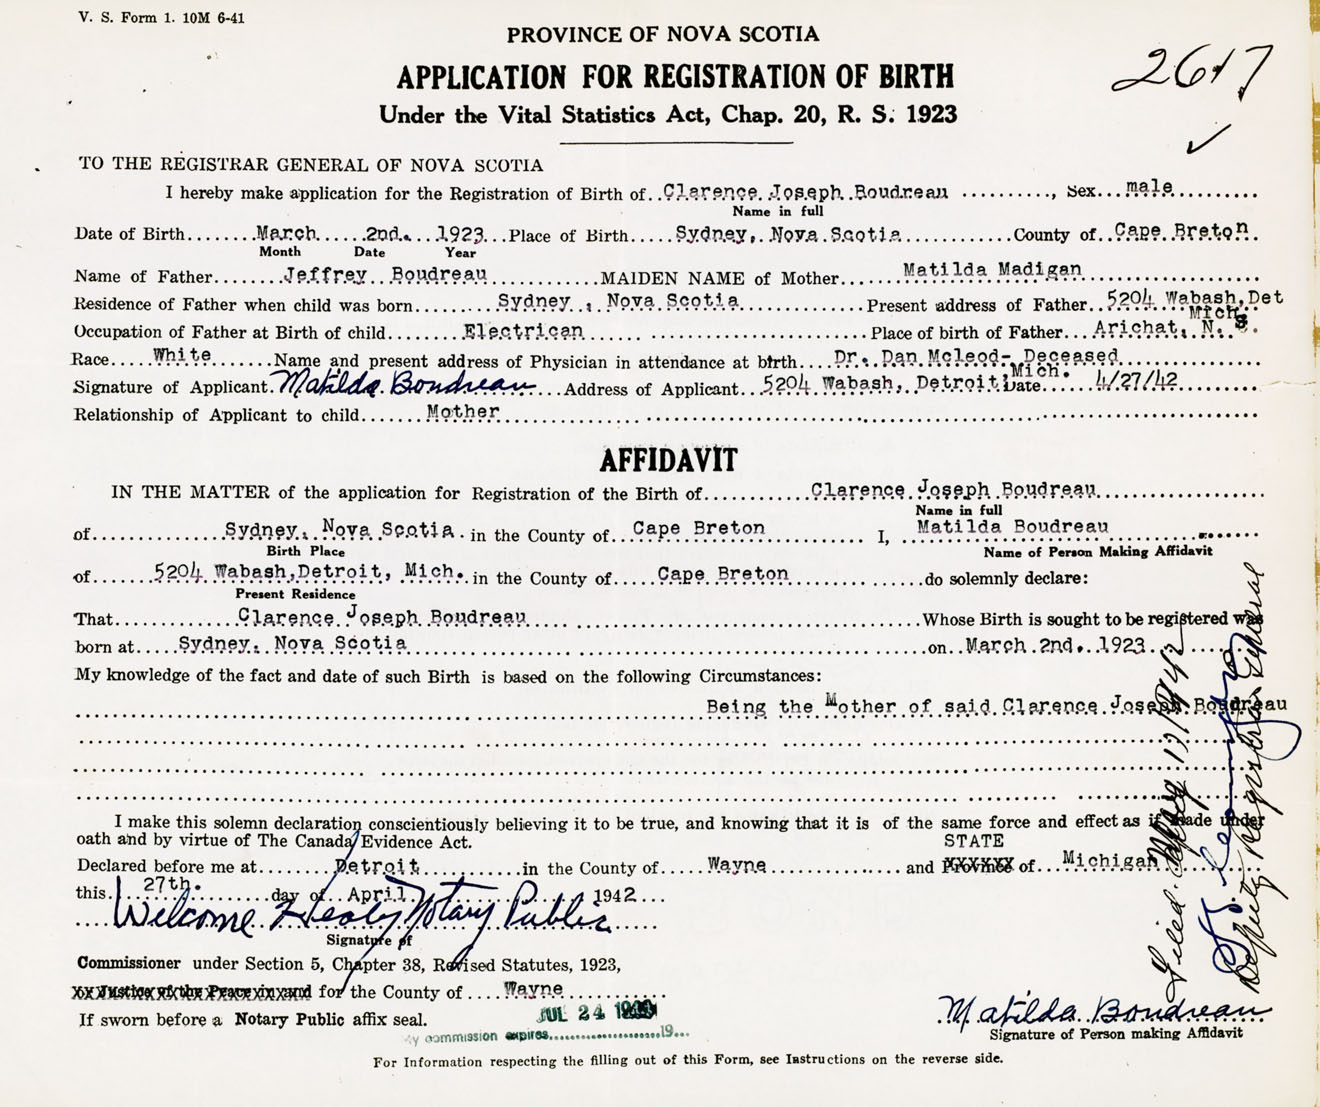 V. S. Form 1. 10M 6-41
PROVINCE OF NOVA SCOTIA
2617
APPLICATION FOR REGISTRATION OF BIRTH
Under the Vital Statistics Act, Chap. 20, R. S. 1923
TO THE REGISTRAR GENERAL OF NOVA SCOTIA
I hereby make application for the Registration of Birth of..Clarence Joseph Boudreau .........., Sex...male..........
Name in full
Date of Birth.......March.....2nd...1923...Place of Birth.....Sydney, Nova Scotia............County of..Cape Breton
Month Date Year
Name of Father.......Jeffrey Boudreau............MAIDEN NAME of Mother.......Matilda Madigan....................
Residence of Father when child was born.......Sydney , Nova Scotia..............Present address of Father..5204 Wabash,Det
Mich.
Occupation of Father at Birth of child......Electrican...... ......................Place of birth of Father...Arichat, N. S.
Race....White.......Name and present address of Physician in attendance at birth....Dr. Dan Mcleod- Deceased..............
Mich.
Signature of Applicant.Matilda Boudreau....Address of Applicant...5204 Wabash, Detroit,Date.....4/27/42........
Relationship of Applicant to child......Mother..............................
AFFIDAVIT
IN THE MATTER of the application for Registration of the Birth of...........Clarence Joseph Boudreau...................
Name in full
of..............Sydney, Nova Scotia. in the County of...Cape Breton............ I, Matilda Boudreau .......
Birth Place Name of Person Making Affidavit
of.......5204 Wabash,Detroit, Mich. in the County of.....Cape Breton...............do solemnly declare:
Present Residence
That............Clarence Joseph Boudreau ..............................Whose Birth is sought to be registered was
born at.....Sydney, Nova Scotia............................on..March 2nd. 1923..........
My knowledge of the fact and date of such Birth is based on the following Circumstances:
Being the Mother of said Clarence Joseph Boudreau
I make this solemn declaration conscientiously believing it to be true, and knowing that it is of the same force and effect as if made under
oath and by virtue of The Canada Evidence Act.
STATE
Declared before me at.........Detroit............in the County of.......Wayne.................and Province of....Michigan
this.....27th.........day of...April..................1942...
Welcome Healy Notary Public
Signature of
Commissioner under Section 5, Chapter 38, Revised Statutes, 1923,
XX Justice of the Peace in and for the County of.....Wayne..............
If sworn before a Notary Public affix seal.
JUL 24
My commission expires....................19...
Matilda Boudreau
Signature of Person making Affidavit
For Information respecting the filling out of this Form, see Instructions on the reverse side.
Filed May
Deputy Registrar General